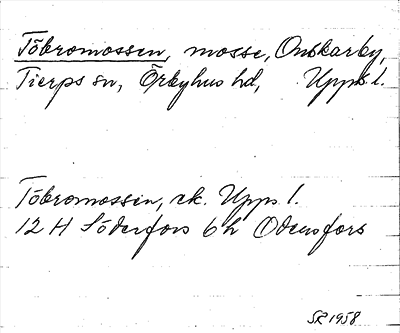 Töbromossen, mosse, Onskarby,
Tierps sn, Örbyhus hd, Upps l.
Töbromossen, ek. Upps l.
12 H Söderfors 6 h Odensfors
SR 1958